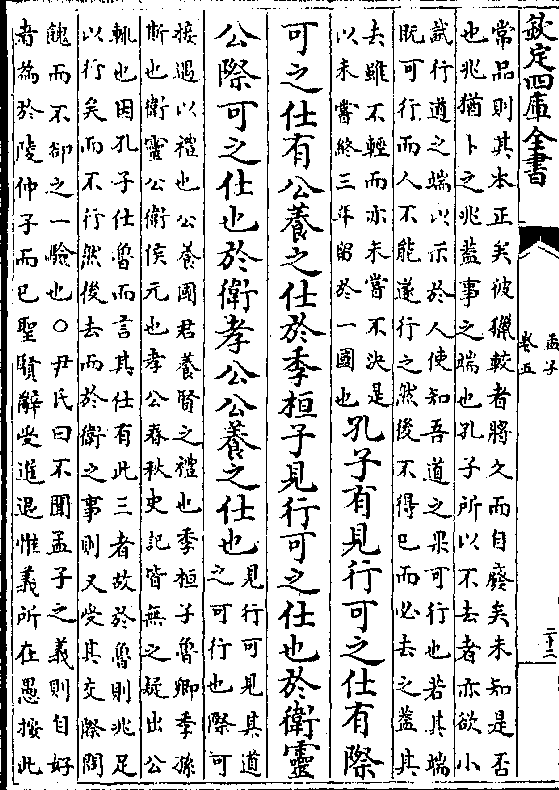 欽定四庫全書
孟子
卷五
二十三
常品則其本正矣彼獵較者將久而自廢矣未知是否
也兆猶卜之兆蓋事之端也孔子所以不去者亦欲小
試行道之端以示於人使知吾道之果可行也若其端
既可行而人不能遂行之然後不得已而必去之蓋其
去雖不輕而亦未嘗不決是
以未嘗終三年留於一國也
孔子有見行可之仕有際
可之仕有公養之仕於季桓子見行可之仕也於衛靈
公際可之仕也於衛孝公公養之仕也
見行可見其道
之可行也際可
接遇以禮也公養國君養賢之禮也季桓子魯卿季孫
斯也衛靈公衛侯元也孝公春秋史記皆無之疑出公
輒也因孔子仕魯而言其仕有此三者故於魯則兆足
以行矣而不行然後去而於衛之事則又受其交際問
餽而不卻之一驗也○尹氏曰不聞孟子之義則自好
者為於陵仲子而已聖賢辭受進退惟義所在愚按此